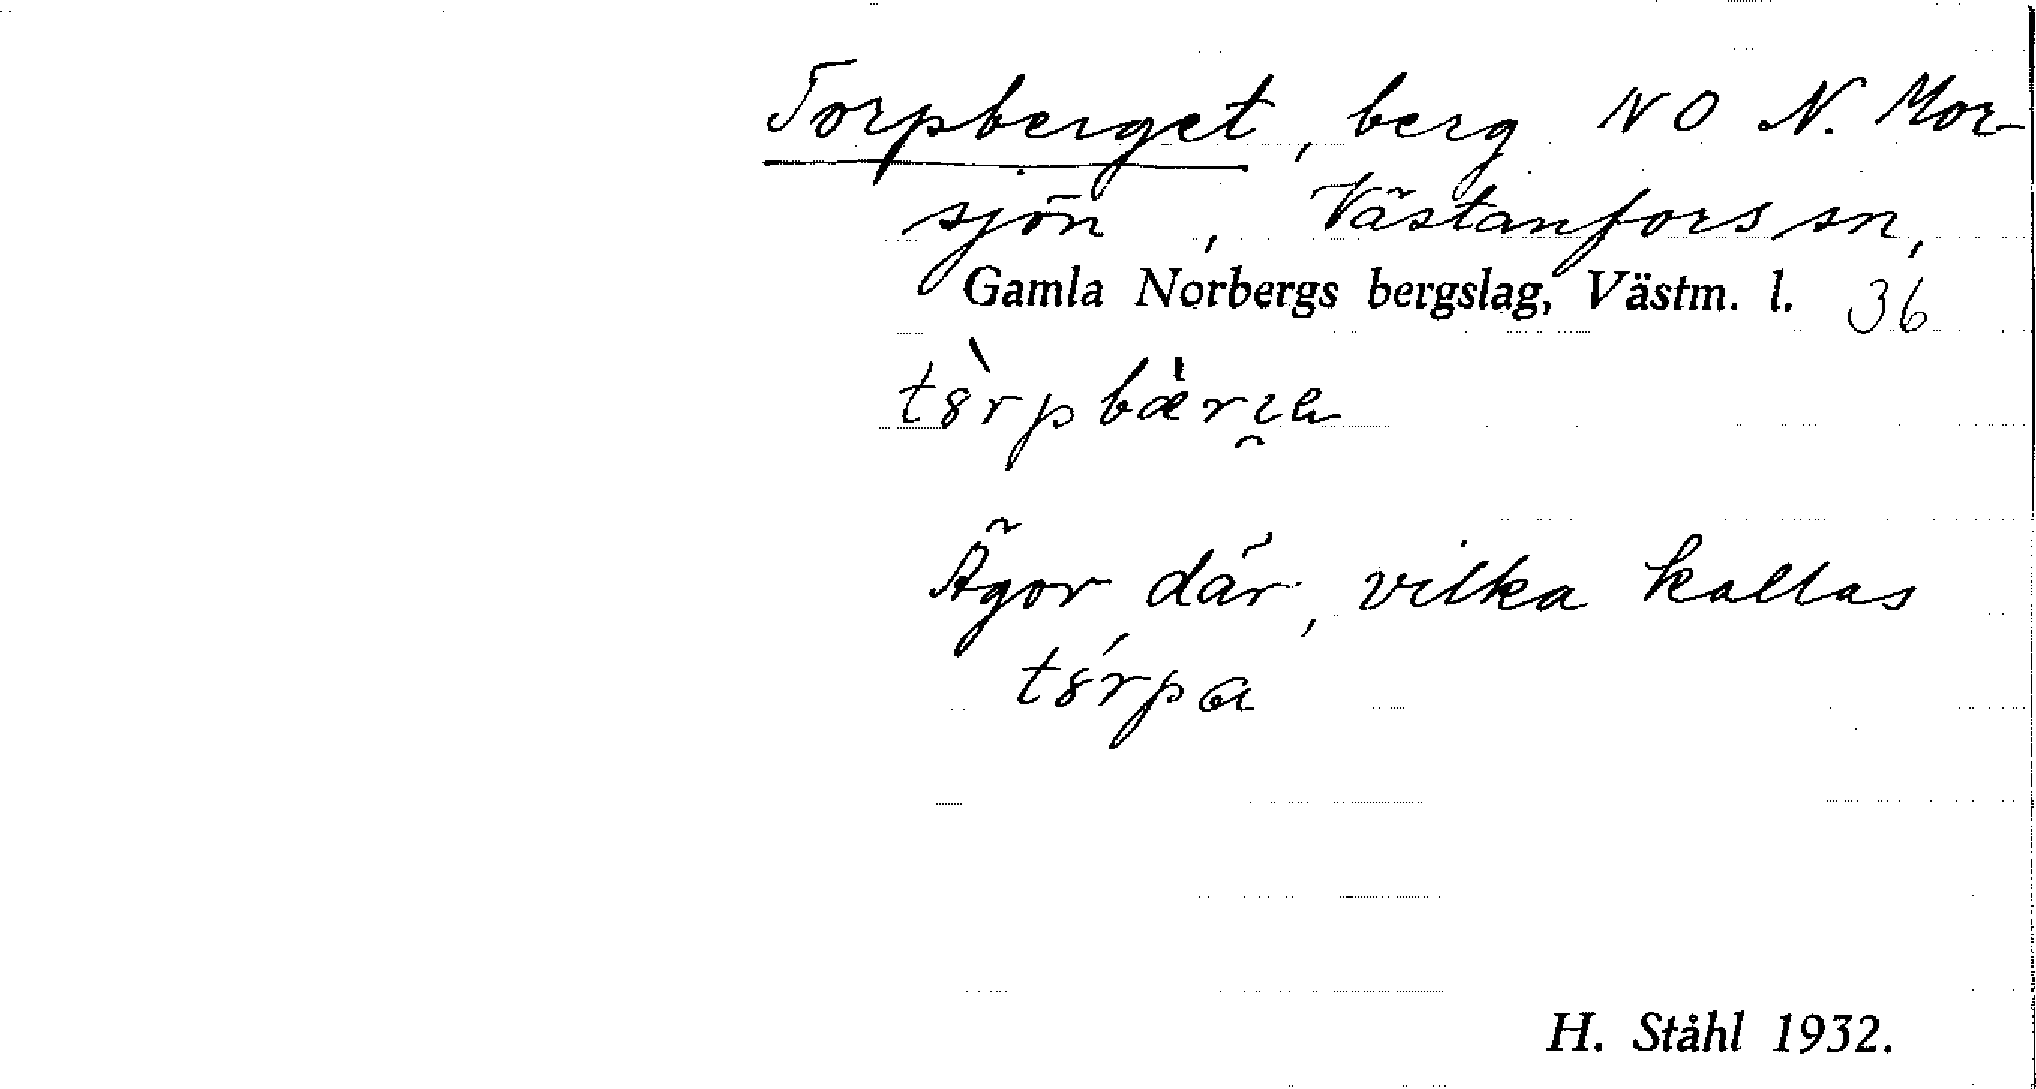 Torpberget, berg NO N. Mor-
sjön, Västanfors sn,
Gamla Norbergs bergslag, Västm. l. 36
tȣ̀rpbæ̀rıa
Ägor där, vilka kallas
tȣ́rpa
H. Ståhl 1932.